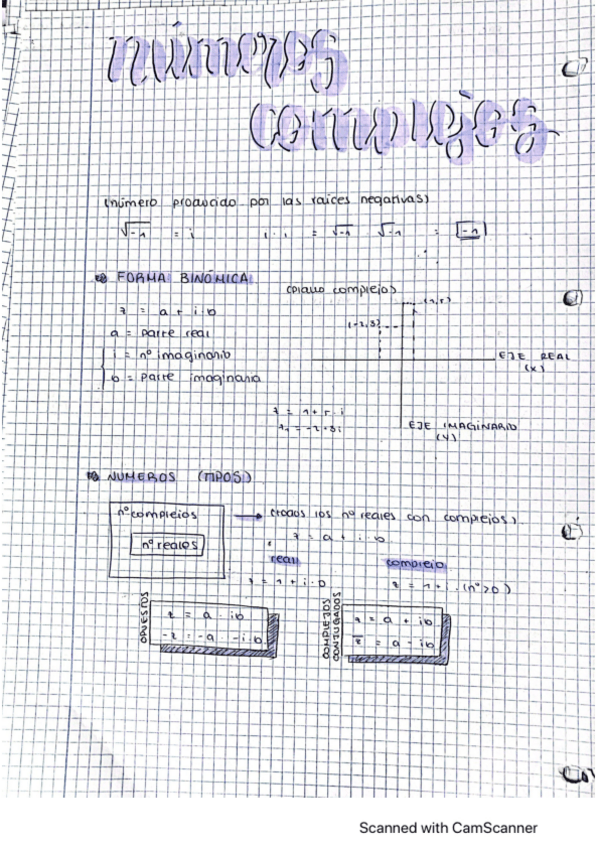 números
complejos
(número producido por las raíces negativas)
√-1 = i i · i = √-1 · √-1 = -1
FORMA BINÓMICA
(plano complejo)
z = a + i·b
a = parte real
i = nº imaginario
b = parte imaginaria
EJE REAL
(x)
EJE IMAGINARIO
(y)
NUMEROS (TIPOS)
nº complejos
nº reales
(todos los nº reales con complejos)
z = a + i·b
real
complejo
z = 1 + i·0
z = 1 + i·(nº>0)
OPUESTOS
-z = -a - i·b
COMPLEJOS CONJUGADOS
z = a + ib
z̅ = a - ib
Scanned with CamScanner